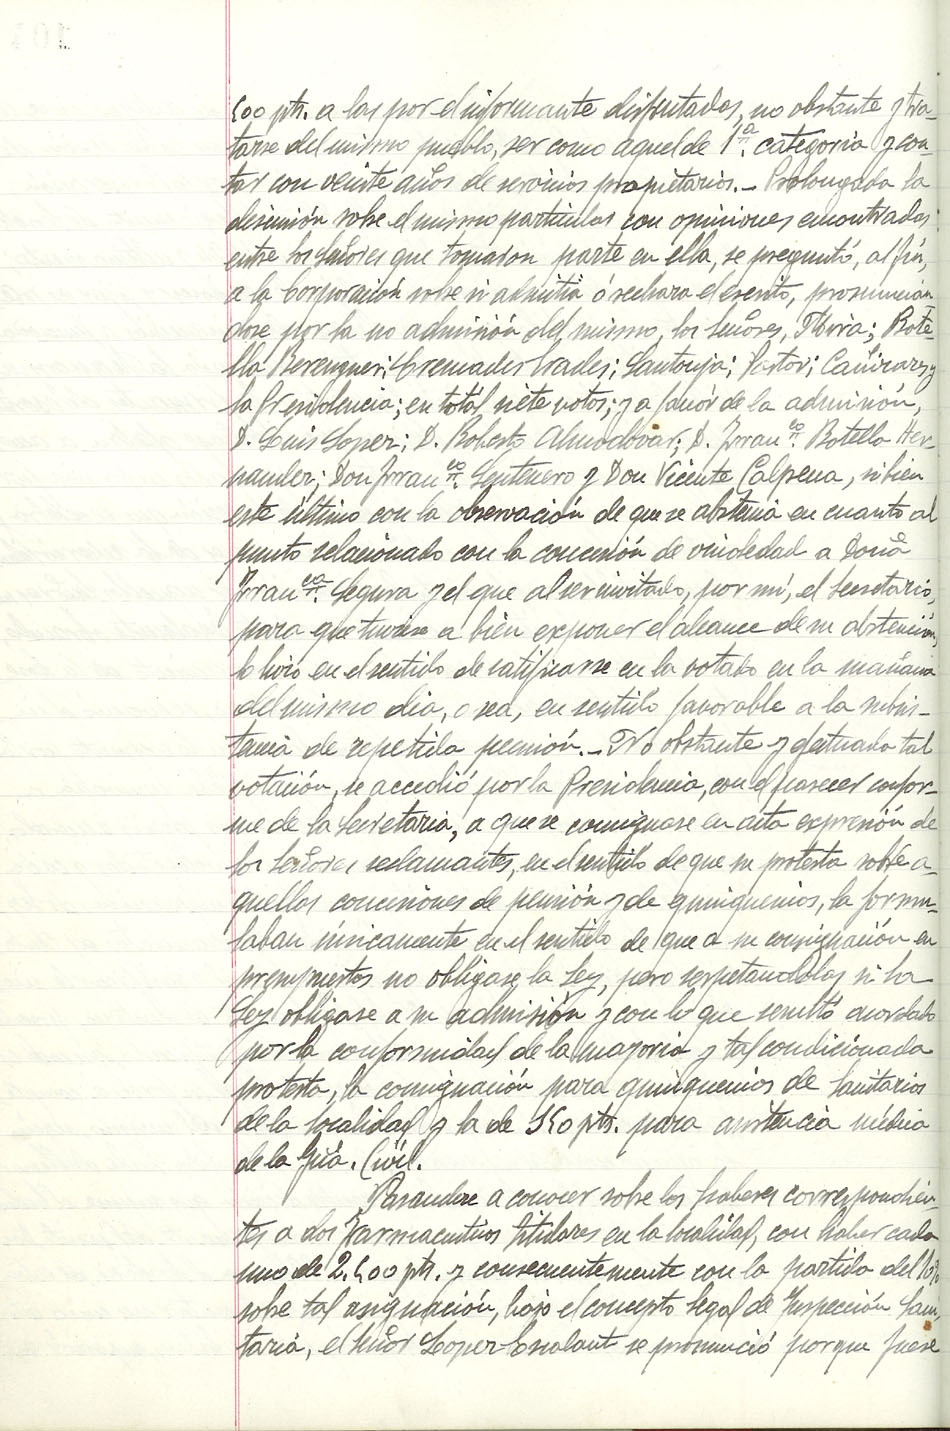 500 pts. a las por el informante disfrutadas, no obstante y tra-
tarse del mismo pueblo, ser como aquel de 1ª. categoria y con-
tar con veinte años de servicios propietarios.- Prolongada la
discusión sobre el mismo particular con opiniones encontradas
entre los señores que tomaron parte en ella, se preguntó, al fín,
a la Corporación sobre si admitia ó rechaza el escrito, pronuncian-
dose por la no admisión del mismo, los señores, Mira; Bote-
lla Berenguer; Cremades Prades; Santonja; Pastor; Cañizares y
la Presidencia; en totál siete votos; y a favór de la admisión,
D. Luis Lopez; D. Roberto Almodóvar; D. Franco. Botella Her-
nandez; Don Franco. Sentenero y Don Vicente Calpena, si bien
este último con la observación de que se abstenia en cuanto al
punto relacionado con la concesión de viudedad a Doña
Franca. Segura y el que al ser invitado, por mí, el Secretario,
para que tuviese a bien exponer el alcance de su abstención,
lo hizo en el sentido de ratificarse en lo votado en la mañana
del mismo dia, o sea, en sentido favorable a la subsis-
tencia de repetida pensión.- No obstante y efectuada tal
votación, se accedió por la Presidencia, con el parecer confor-
me de la Secretaria, a que se consignase en acta expresión de
los señores reclamantes, en el sentido de que su protesta sobre a-
quellas concesiones de pensión y de quinquenios, la formu-
laban únicamente en el sentido de que a su consignación en
presupuestos no obligase la Ley, pero respetandolas si la
Ley obligase a su admisión y con lo que resultó acordado
por la conformidad de la mayoria y tal condicionada
protesta, la consignación para quinquenios de sanitarios
de la localidad y la de 150 pts. para asistencia médica
de la Guª. Civil.
Pasandose a conocer sobre los haberes correspondien-
tes a dos Farmaceuticos titulares en la localidad, con haber cada
uno de 2.500 pts. y consecuentemente con la partida del 10%
sobre tal asignación, bajo el concepto legal de Inspección Sani-
taria, el señor Lopez-Escalant se pronunció porque fuese